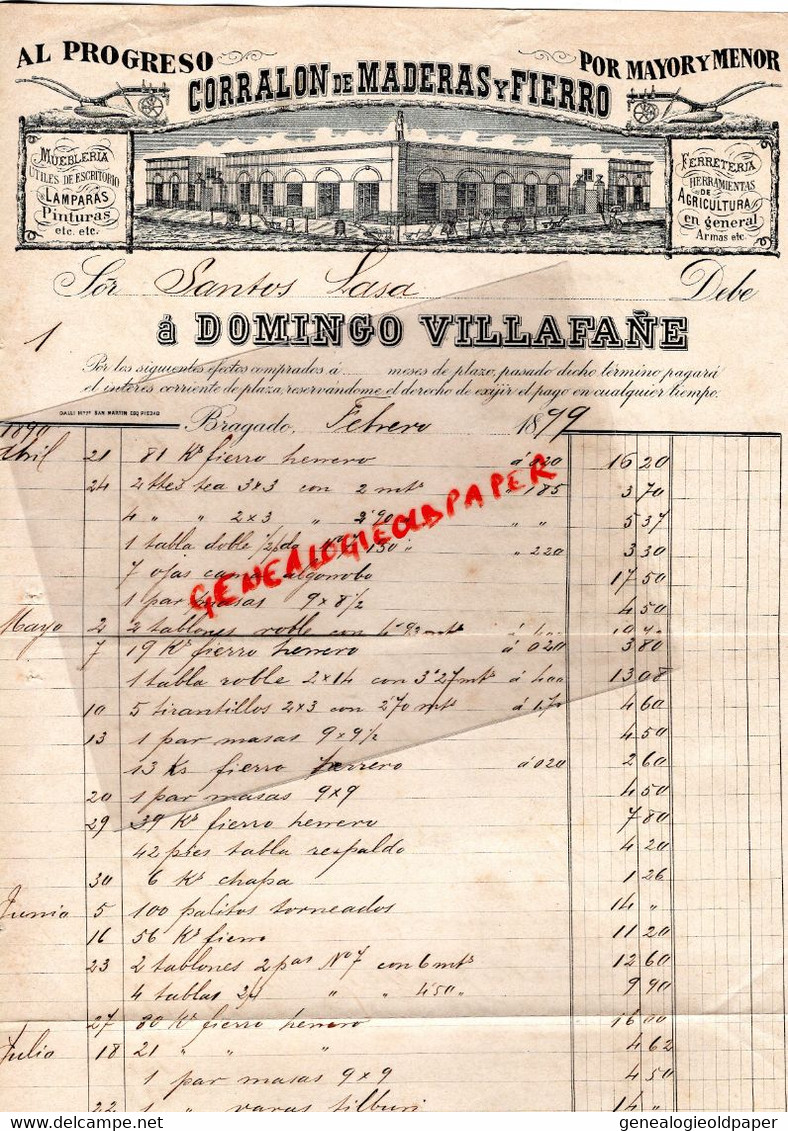 AL PROGRESO
POR MAYOR Y MENOR
CORRALON DE MADERAS Y FIERRO
MUEBLERIA
UTILES DE ESCRITORIO
LAMPARAS
Pinturas
etc. etc.
FERRETERIA
HERRAMIENTAS
DE
AGRICULTURA
en general
Armas etc.
Sor Santos Lasa Debe
á DOMINGO VILLAFAÑE
1
Por los siguientes efectos comprados á meses de plazo, pasado dicho término pagará
el interés corriente de plaza, reservándome el derecho de exijir el pago en cualquier tiempo.
SAN MARTIN ESQ PIEDAD
Bragado, Febrero 1899
Abril 21 81 Ks fierro herrero á 020 16 20
24 2 ttes tea 3x3 con 2 mts 185 3 70
4 " " 2x3 " 2'90 " " 5 37
1 tabla doble " 220 3 30
7 ojas algarrobo 17 50
1 par masas 9x8 1/2 4 50
Mayo 2 2 tablones roble con
7 19 Ks fierro herrero á 020 3 80
1 tabla roble 2x14 con 3'27 mts á 400 13 08
10 5 tirantillos 2x3 con 2'70 mts 4 60
13 1 par masas 9x9 1/2 4 50
13 Ks fierro herrero á 020 2 60
20 1 par masas 9x9 4 50
29 39 Ks fierro herrero 7 80
42 pies tabla respaldo 4 20
30 6 Ks chapa 1 26
Junio 5 100 palitos torneados 14 "
16 56 Ks fierro 11 20
23 2 tablones 2 pas No 7 con 6 mts 12 60
4 tablas " " 4'50 " 9 90
27 80 Ks fierro herrero 16 00
Julio 18 21 " " " 4 62
1 par masas 9x9 4 50
22 1 " varas tilburi 14 "
GENEALOGIEOLDPAPER
genealogieoldpaper